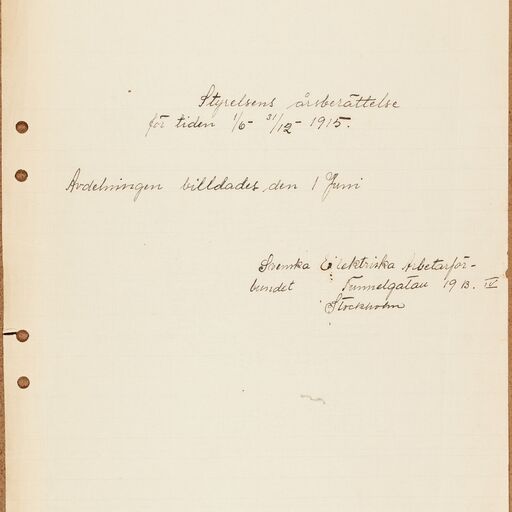 Styrelsens årsberättelse
för tiden 1/6 - 31/12 - 1915.
Avdelningen billdades den 1 Juni
Svenska Elektriska Arbetarför-
bundet Tunnelgatan 19 B. IV
Stockholm